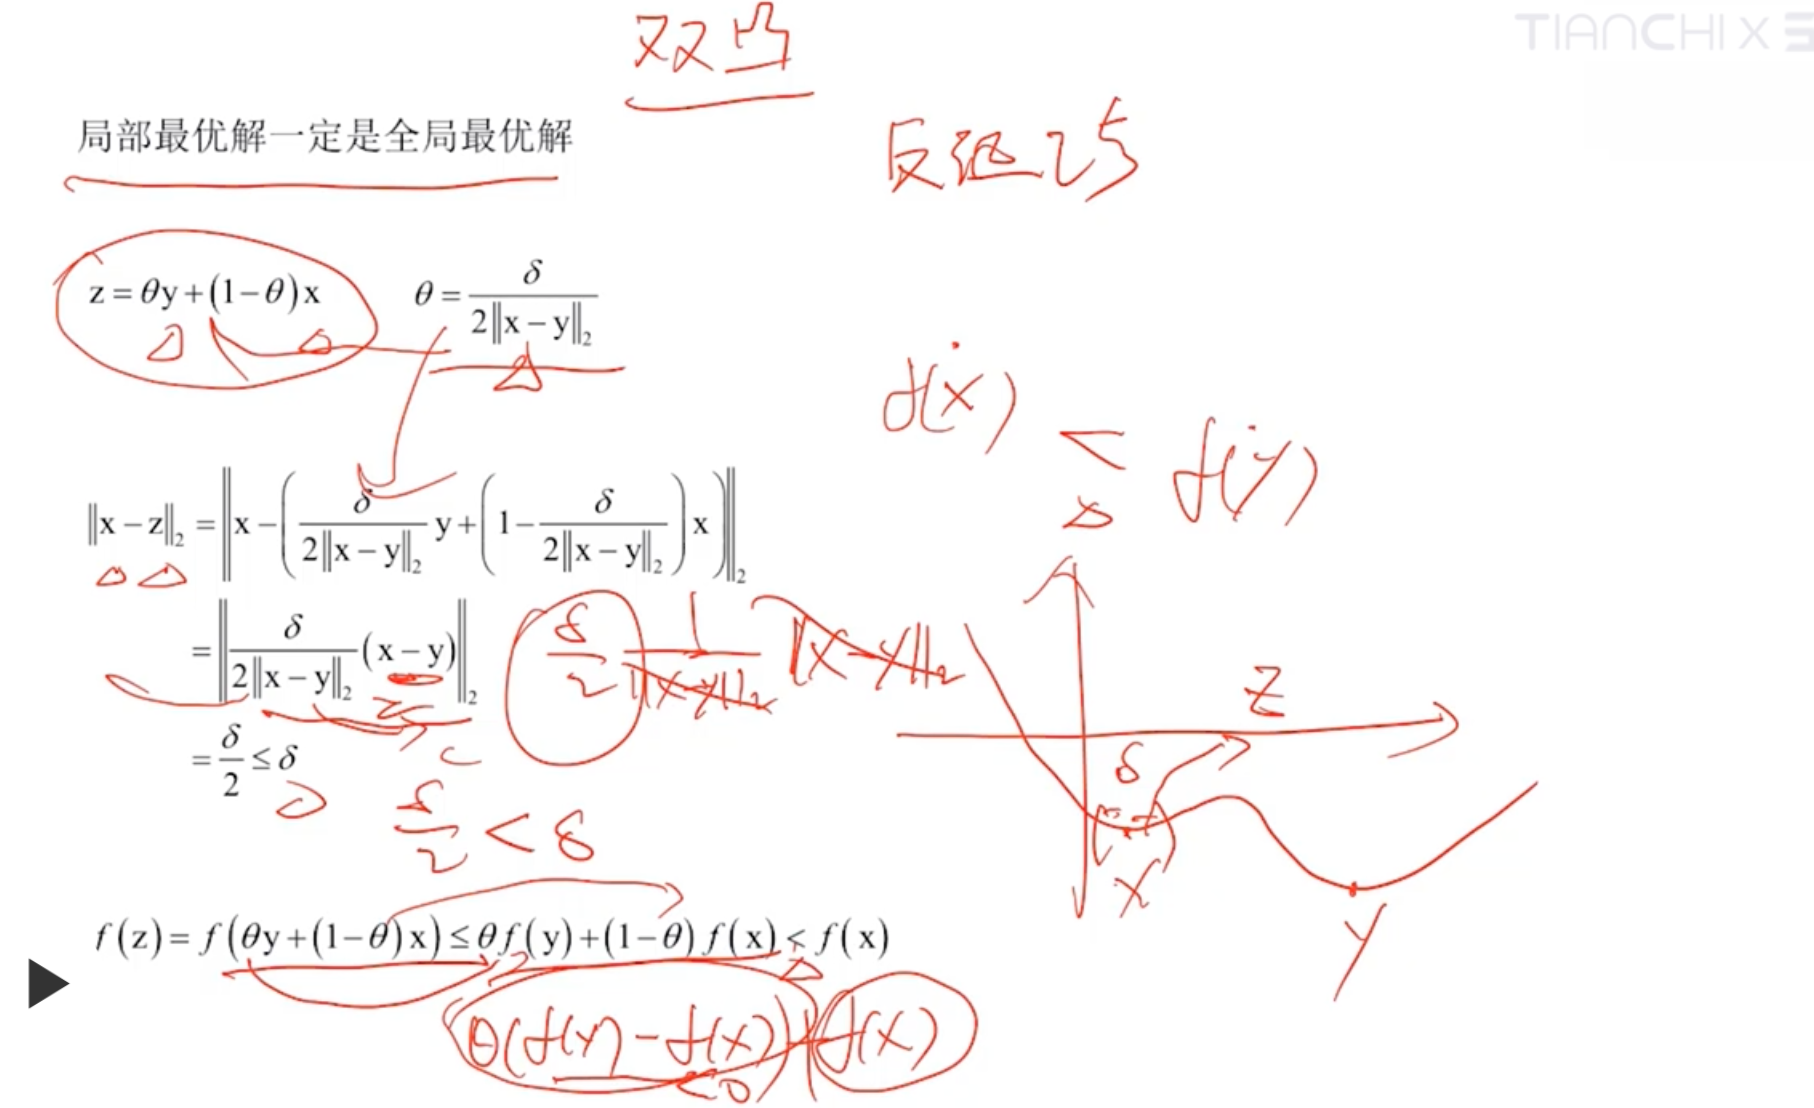 TIANCHI X
双凸
局部最优解一定是全局最优解
反证
z = θy + (1 − θ) x    θ = δ / (2‖x − y‖₂)
f(x) < f(y)
‖x − z‖₂ = ‖x − ( δ / (2‖x − y‖₂) y + (1 − δ / (2‖x − y‖₂) ) x )‖₂
= ‖ δ / (2‖x − y‖₂) (x − y) ‖₂    δ/2 1/‖x−y‖₂ ‖x−y‖₂
z
= δ/2 ≤ δ
δ
δ/2 < δ
x
y
f(z) = f(θy + (1 − θ) x) ≤ θf(y) + (1 − θ) f(x) < f(x)
θ(f(y) − f(x)) + f(x)
<0